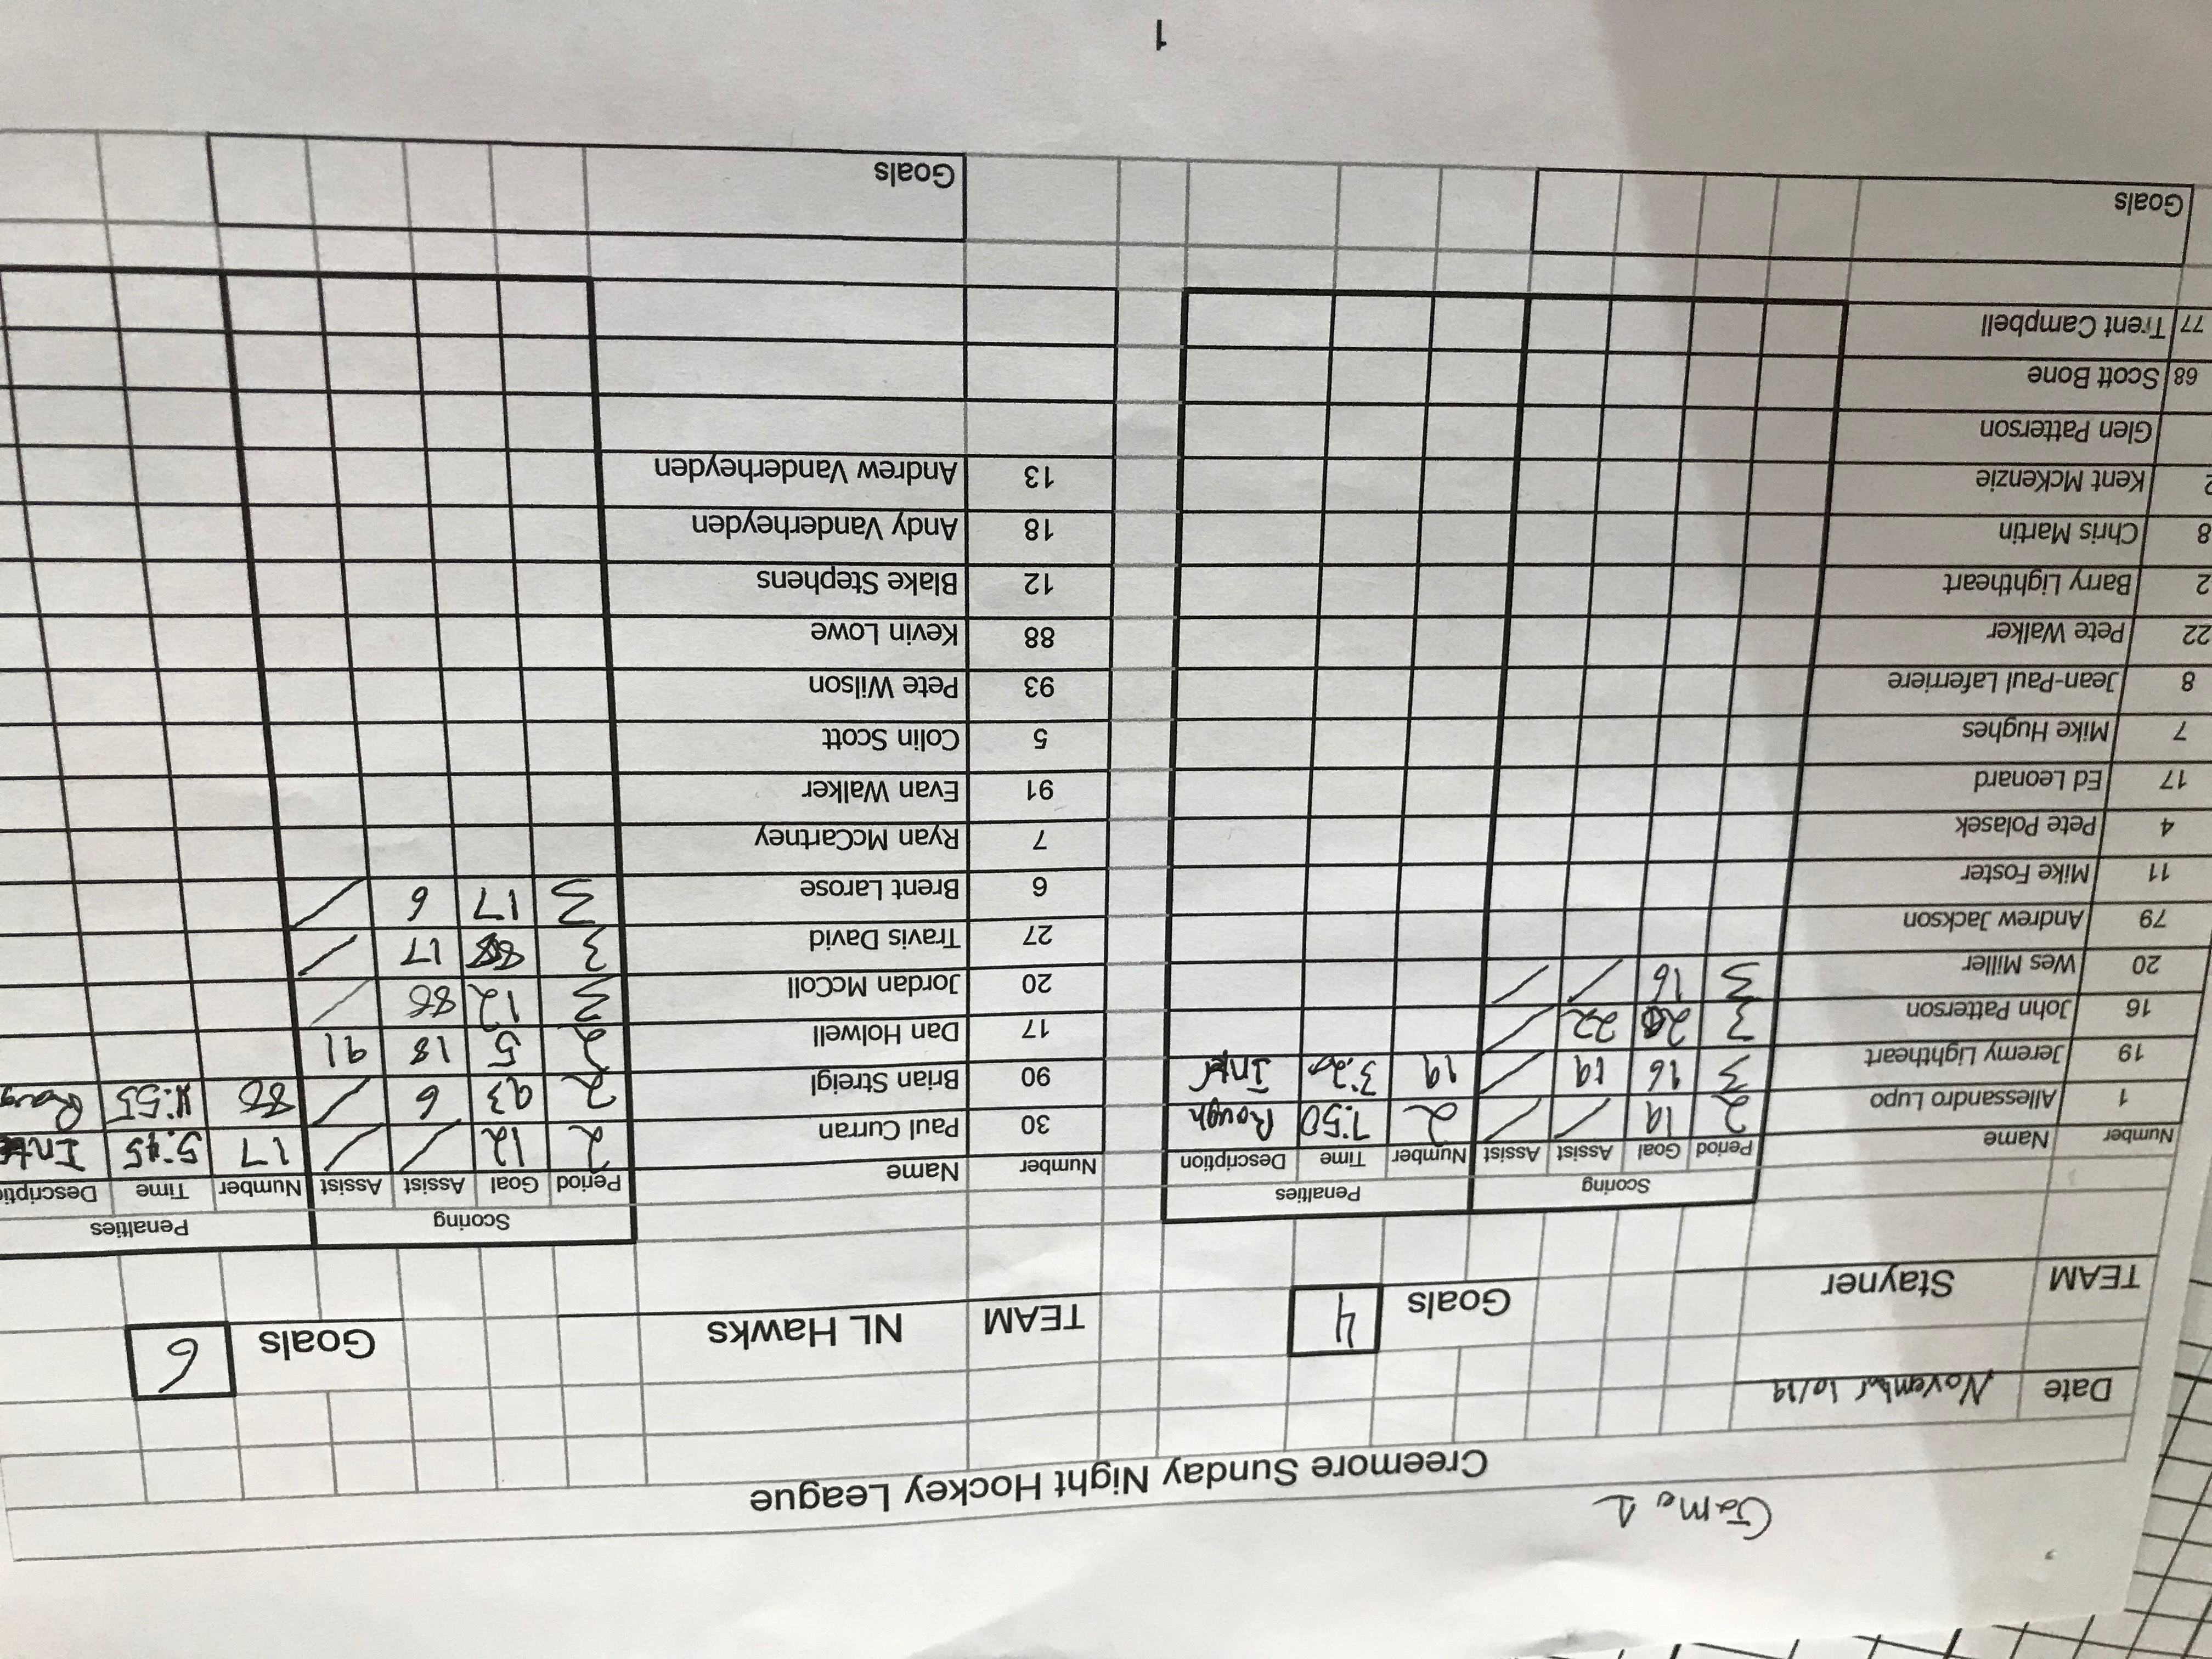 Game 1
Creemore Sunday Night Hockey League
Date November 10/19
TEAM Stayner Goals 4
TEAM NL Hawks Goals 6
Scoring Penalties
Number Name Period Goal Assist Assist Number Time Description
1 Allessandro Lupo 2 19 / / 2 7:50 Rough
19 Jeremy Lightheart 3 16 19 / 19 3:20 Inter
16 John Patterson 3 20 22 /
20 Wes Miller 3 16 / /
79 Andrew Jackson
11 Mike Foster
4 Pete Polasek
17 Ed Leonard
7 Mike Hughes
8 Jean-Paul Laferriere
22 Pete Walker
2 Barry Lightheart
8 Chris Martin
2 Kent McKenzie
Glen Patterson
68 Scott Bone
77 Trent Campbell
Goals
Scoring Penalties
Number Name Period Goal Assist Assist Number Time Descripti
30 Paul Curran 2 12 / / 17 5:45 Inte
90 Brian Streigl 2 93 6 / 88 :55 Roug
17 Dan Holwell 2 5 18 91
20 Jordan McColl 3 12 88 /
27 Travis David 3 88 17 /
6 Brent Larose 3 17 6 /
7 Ryan McCartney
91 Evan Walker
5 Colin Scott
93 Pete Wilson
88 Kevin Lowe
12 Blake Stephens
18 Andy Vanderheyden
13 Andrew Vanderheyden
Goals
1